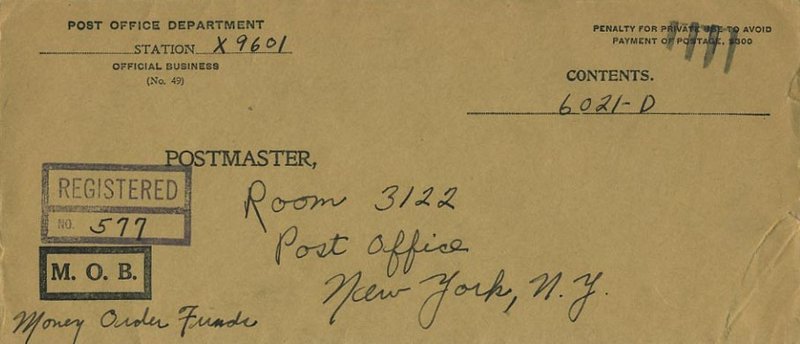 POST OFFICE DEPARTMENT
STATION X 9601
OFFICIAL BUSINESS
(No. 49)
PENALTY FOR PRIVATE USE TO AVOID
PAYMENT OF POSTAGE, $300
CONTENTS.
6021-D
POSTMASTER,
REGISTERED
NO. 577
M. O. B.
Room 3122
Post Office
New York, N.Y.
Money Order Funds